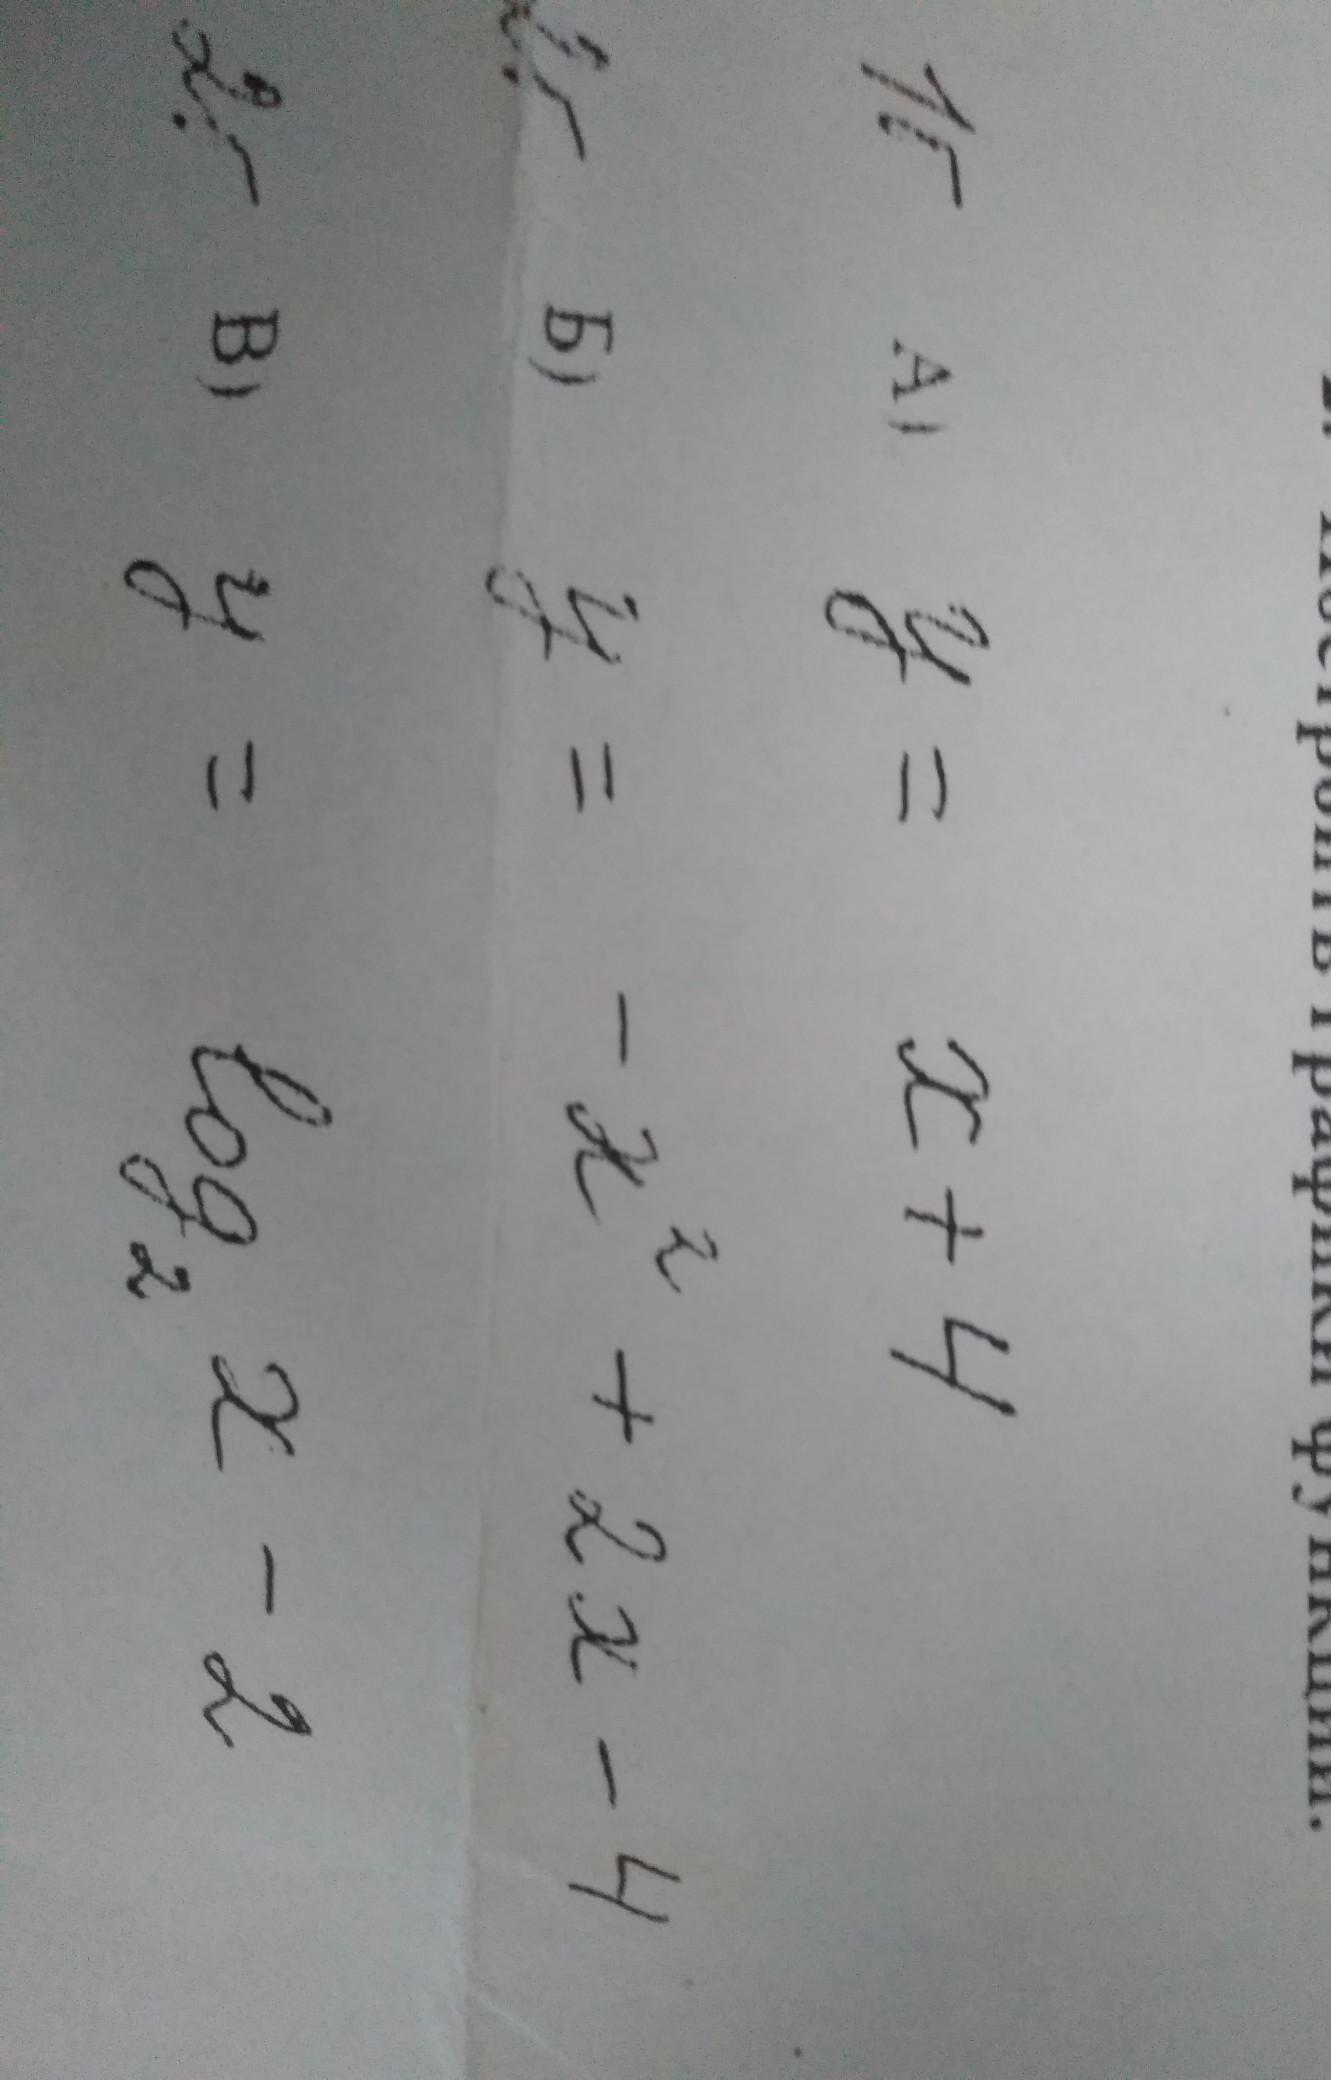 Построить графики функций.
1б А) y = x + 4
Б) y = - x² + 2x - 4
2б В) y = log₂ x - 2